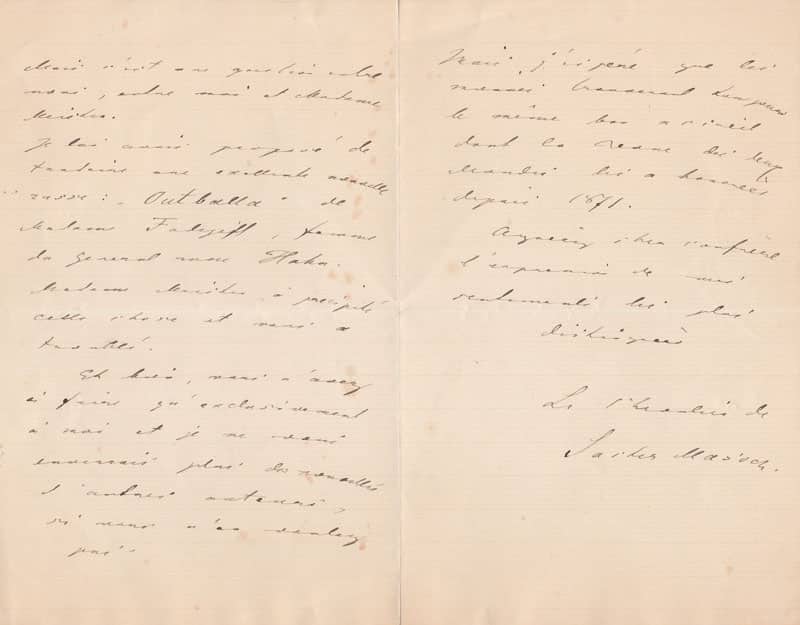 Mais c'est une question entre
nous, entre moi et Madame
Meister.
Je lui avais proposé de
traduire une excellente nouvelle
russe: "Outballa" de
Madame Fadejeff, femme
du général russe Hahn.
Madame Meister a précipité
cette chose et vous a
travaillé.
Eh bien, vous n'avez
à faire qu'exclusivement
à moi et je ne vous
enverrais plus des nouvelles
d'autres auteurs,
si vous n'en voulez
pas.
Mais j'espère que les
miennes trouveront toujours
le même bon accueil
dont la Revue des deux
Mondes les a honorées
depuis 1871.
Agréez cher confrère
l'expression de mes
sentiments les plus
distingués
Le Chevalier de
Sacher Masoch.